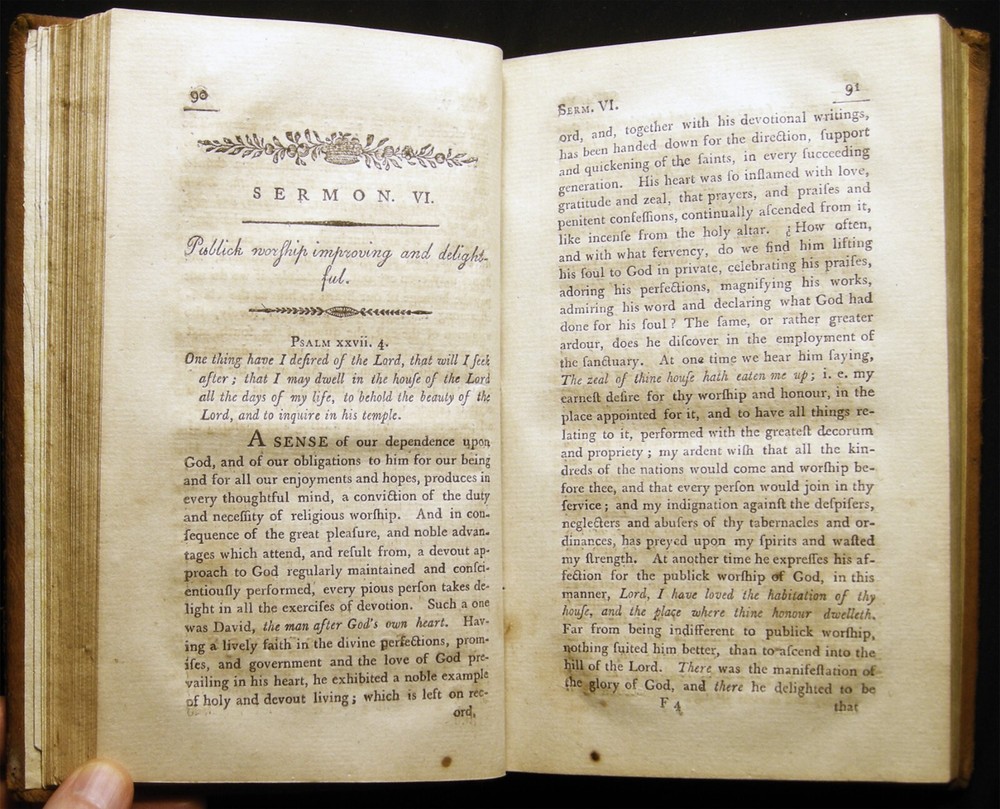 90
SERMON. VI.
Publick worſhip improving and delight-
ful.
PSALM xxvii. 4.
One thing have I deſired of the Lord, that will I ſeek
after; that I may dwell in the houſe of the Lord
all the days of my life, to behold the beauty of the
Lord, and to inquire in his temple.
A SENSE of our dependence upon
God, and of our obligations to him for our being
and for all our enjoyments and hopes, produces in
every thoughtful mind, a conviction of the duty
and neceſſity of religious worſhip. And in con-
ſequence of the great pleaſure, and noble advan-
tages which attend, and reſult from, a devout ap-
proach to God regularly maintained and conſci-
entiouſly performed, every pious perſon takes de-
light in all the exerciſes of devotion. Such a one
was David, the man after God's own heart. Hav-
ing a lively faith in the divine perfections, prom-
iſes, and government and the love of God pre-
vailing in his heart, he exhibited a noble example
of holy and devout living; which is left on rec-
ord,
SERM. VI.
91
ord, and, together with his devotional writings,
has been handed down for the direction, ſupport
and quickening of the ſaints, in every ſucceeding
generation. His heart was ſo inflamed with love,
gratitude and zeal, that prayers, and praiſes and
penitent confeſſions, continually aſcended from it,
like incenſe from the holy altar. ¿How often,
and with what fervency, do we find him lifting
his ſoul to God in private, celebrating his praiſes,
adoring his perfections, magnifying his works,
admiring his word and declaring what God had
done for his ſoul? The ſame, or rather greater
ardour, does he diſcover in the employment of
the ſanctuary. At one time we hear him ſaying,
The zeal of thine houſe hath eaten me up; i. e. my
earneſt deſire for thy worſhip and honour, in the
place appointed for it, and to have all things re-
lating to it, performed with the greateſt decorum
and propriety; my ardent wiſh that all the kin-
dreds of the nations would come and worſhip be-
fore thee, and that every perſon would join in thy
ſervice; and my indignation againſt the deſpiſers,
neglecters and abuſers of thy tabernacles and or-
dinances, has preyed upon my ſpirits and waſted
my ſtrength. At another time he expreſſes his af-
fection for the publick worſhip of God, in this
manner, Lord, I have loved the habitation of thy
houſe, and the place where thine honour dwelleth.
Far from being indifferent to publick worſhip,
nothing ſuited him better, than to aſcend into the
hill of the Lord. There was the manifeſtation of
the glory of God, and there he delighted to be
F 4
that